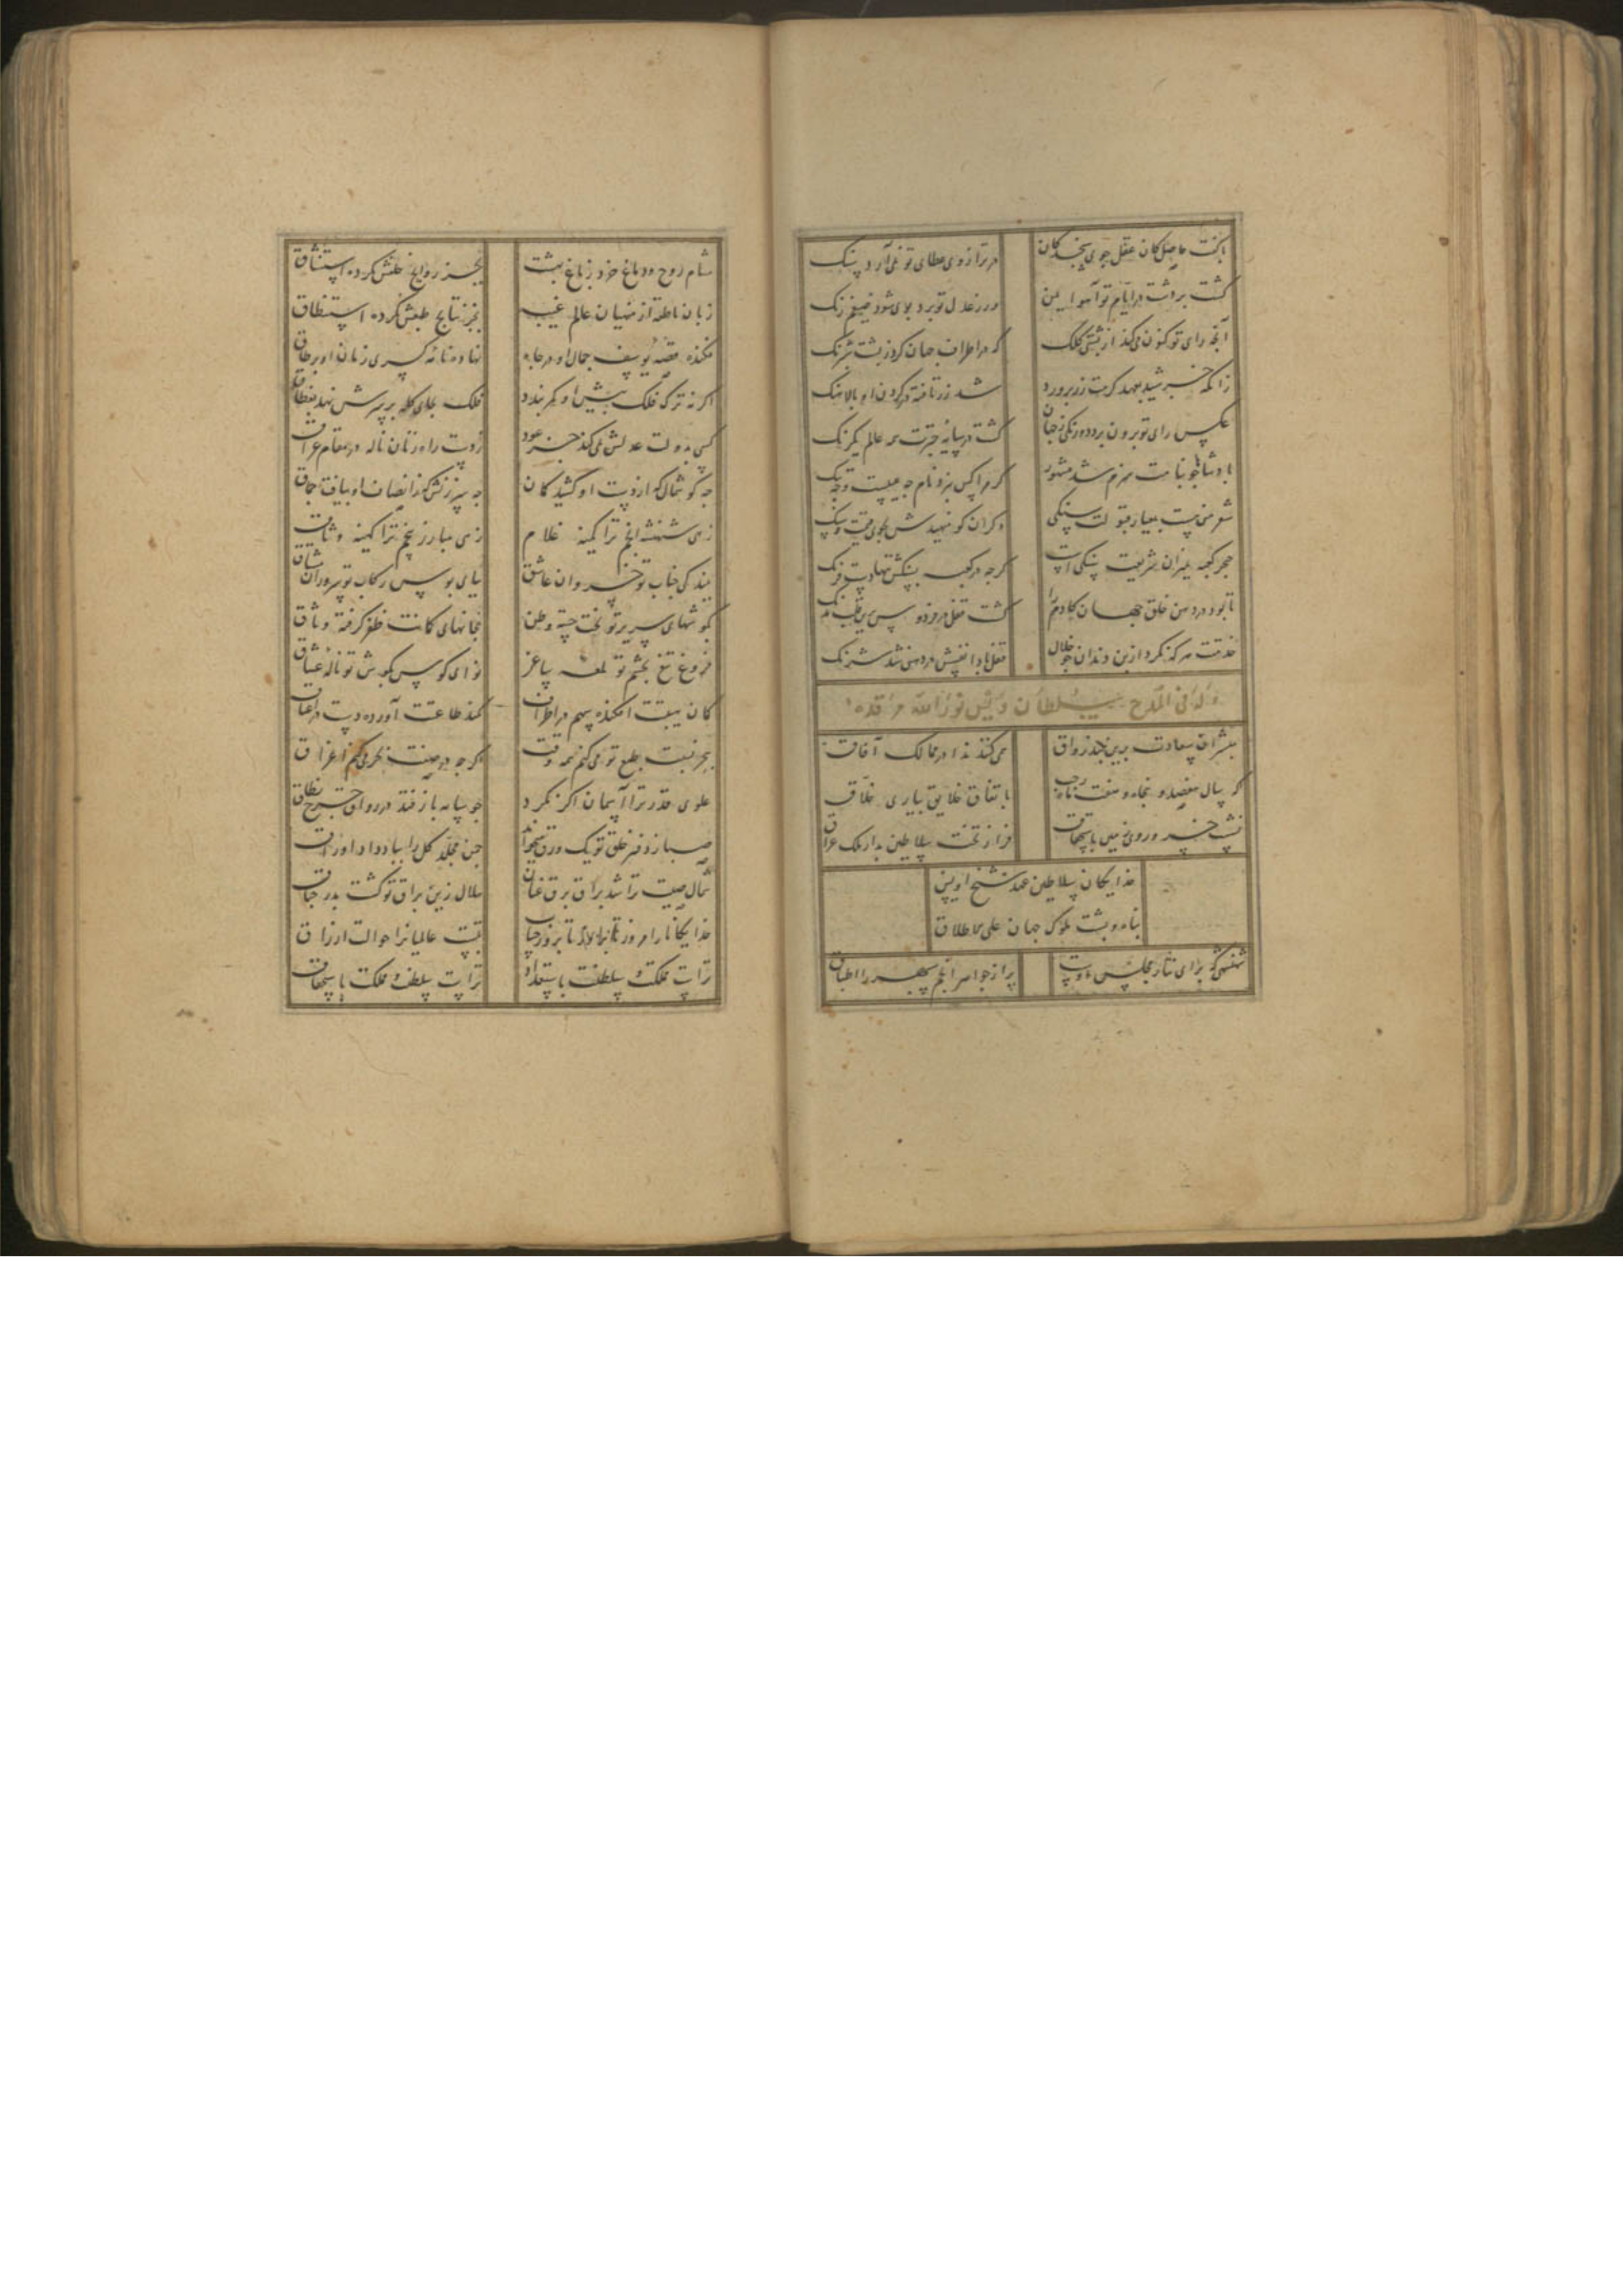 با کفت حاصل کان عقل جوی سنجد کان در ترازوی عطای تو نمی‌آرد سنک
کشت بر دشت در ایام تو آهو ایمن ور ز عدل تو برد بوی شود ضیغم رنک
آنچه رای تو کنون می‌کند از پشتی کلک که در اطراف جهان کرد
زانکه خورشید بعهد کرمت زر پرورد شد ز زر تافته در کردن او پالاهنک
عکس رای تو برون برد دورنکی ز جهان کشت در سایه چترت همه عالم یکرنک
پادشاها چو بنامت هنرم شد مشهور کر مرا کس نبرد نام چه عیبست و چه ننک
شعر من نیست بمعیار قبولت سنکی دکران کو منهیدش بجوی قیمت و سنک
حجر کعبه بمیزان شریعت سنکی است کرچه در کعبه
تا بود در دهن خلق جهان کادم را کشت
خدمتت هر که نکرد از بن دندان چو خلال
وله فی المدح سلطان ویس نور الله مرقده
مبشران سعادت برین بلند رواق همی کنند ندا در ممالک آفاق
که سال هفصد و پنجاه و هفت ماه رجب باتفاق خلایق بیاری خلاق
نشست خسرو روی زمین باستحقاق فراز تخت سلاطین بدار ملک عراق
خدایکان سلاطین عهد شیخ اویس
پناه و پشت ملوک جهان علی الاطلاق
شهنشهی که برای نثار مجلس اوست پر از جواهر انجم سپهر را اطباق
مشام روح و دماغ خرد ز باغ بهشت بجز روایح خلقش نکرده استنشاق
زبان ناطقه از منهیان عالم غیب بجز نتایج طبعش نکرده استنطاق
فکنده قصه یوسف جمال او در چاه نهاده نامه کسری زمان او بر طاق
اکر نه ترک فلک پیش او کمر بندد فلک بجای کله بر سرش نهد بغطاق
کسی بدولت عدلش نمی‌کند جز عود ز دست راه زنان ناله در مقام عراق
چه کوشمال که از دست او کشید کمان چه سرزنش که ز انصاف او نیافت چماق
زهی شهنشه انجم ترا کمینه غلام زهی مبارز پنجم ترا کمینه وشاق
ببندکی جناب تو خسروان عاشق بپای بوس رکاب تو سروران مشتاق
بکوشهای سریر تو تخت جسته وطن بخانهای کمانت ظفر کرفته وثاق
فروغ تیغ بچشم تو لمعه ساغر نوای کوس بکوش تو ناله عشاق
کمان هیبتت افکنده سهم در اطراف کمند طاعتت آورده دست در اعناق
ببحر نسبت طبع تو می کنم همه وقت اکرچه در صفت بحر می‌کنم اغراق
علوی قدر ترا آسمان اکر نکرد چو سایه باز فتد در رواق چرخ نطاق
صبا ز دفتر خلق تو یک ورق میخواند چمن مجلد کل را بباد داد اوراق
شمال صیت ترا شد براق برق عنان هلال زین براق تو کشت بدر جناق
خدایکانا از امروز تا بروز حساب بتست عالمیانرا حوالت ارزاق
تراست مملکت و سلطنت باستعداد تراست سلطنت و مملکت باستحقاق